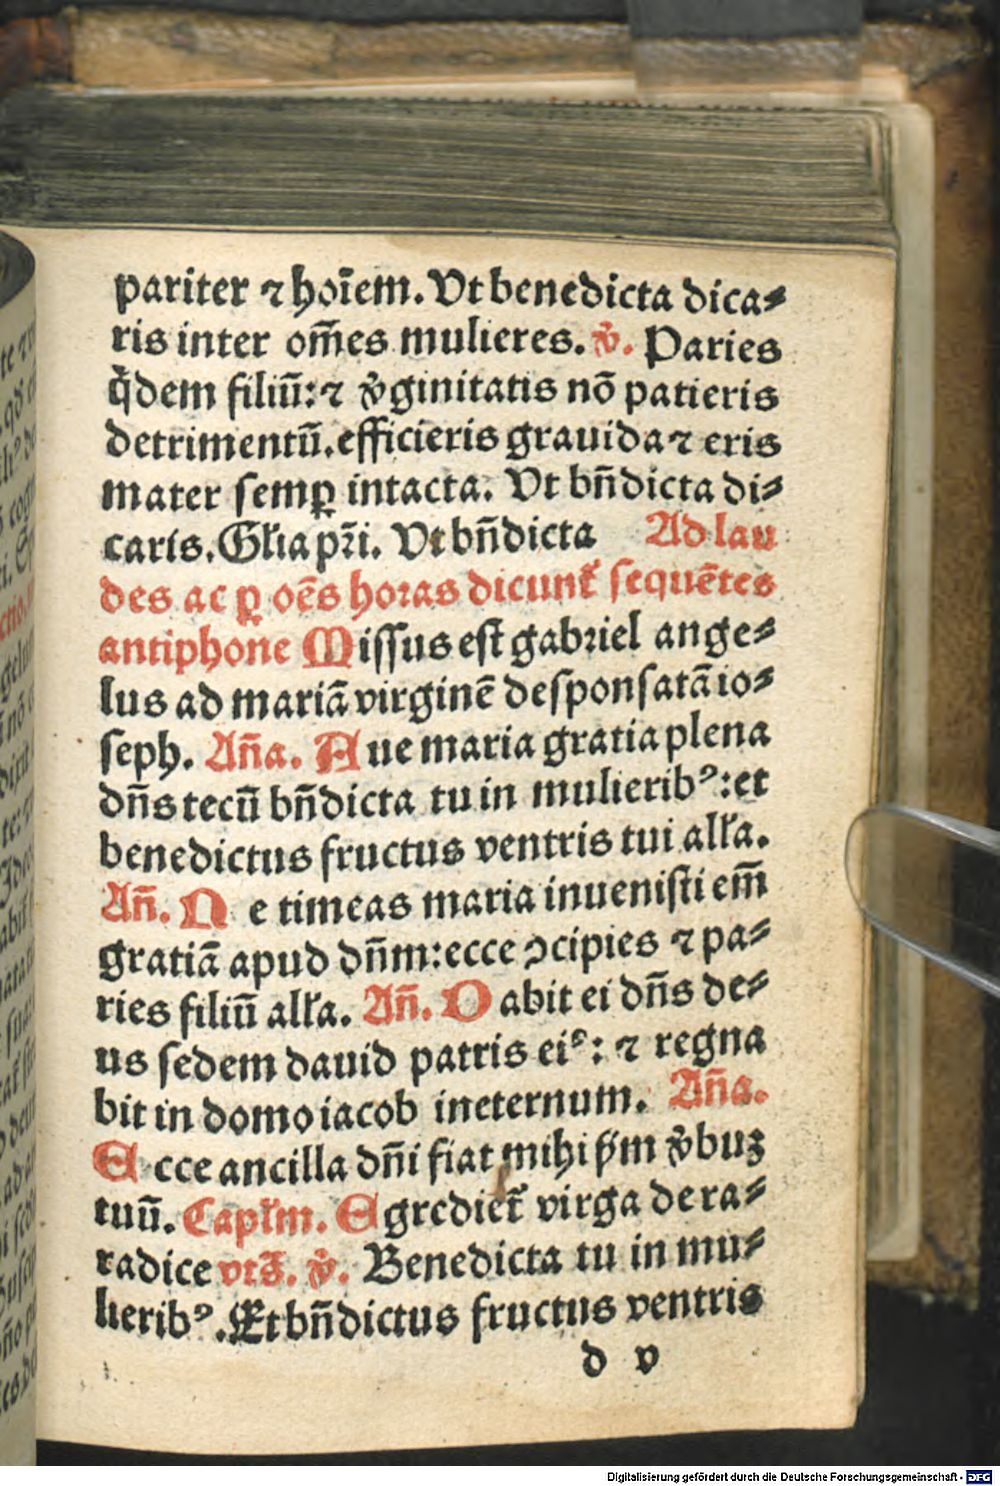 pariter ⁊ hoīem. Ut benedicta dica⸗
ris inter om̄es mulieres. v̓. Paries
q̇dem filiū: ⁊ v̓ginitatis nō patieris
detrimentū. efficieris grauida ⁊ eris
mater semꝑ intacta. Ut bn̄dicta di⸗
caris. Gl̓ia pr̄i. Ut bn̄dicta Ad lau
des ac ꝑ oēs horas dicunt̓ sequētes
antiphone Missus est gabriel ange⸗
lus ad mariā virginē desponsatā io⸗
seph. Aña. Aue maria gratia plena
dn̄s tecū bn̄dicta tu in mulieribꝰ: et
benedictus fructus ventris tui all̓a.
Añ. Ne timeas maria inuenisti em̄
gratiā apud dn̄m: ecce ꝯcipies ⁊ pa⸗
ries filiū all̓a. Añ. Dabit ei dn̄s de⸗
us sedem dauid patris eiꝰ: ⁊ regna
bit in domo iacob ineternum. Aña.
Ecce ancilla dn̄i fiat mihi ẜm v̓buꝫ
tuū. Capl̓m. Egrediet̓ virga de ra⸗
radice vts̄. v̓. Benedicta tu in mu⸗
lieribꝰ. Et bn̄dictus fructus ventris
d v
Digitalisierung gefördert durch die Deutsche Forschungsgemeinschaft - DFG